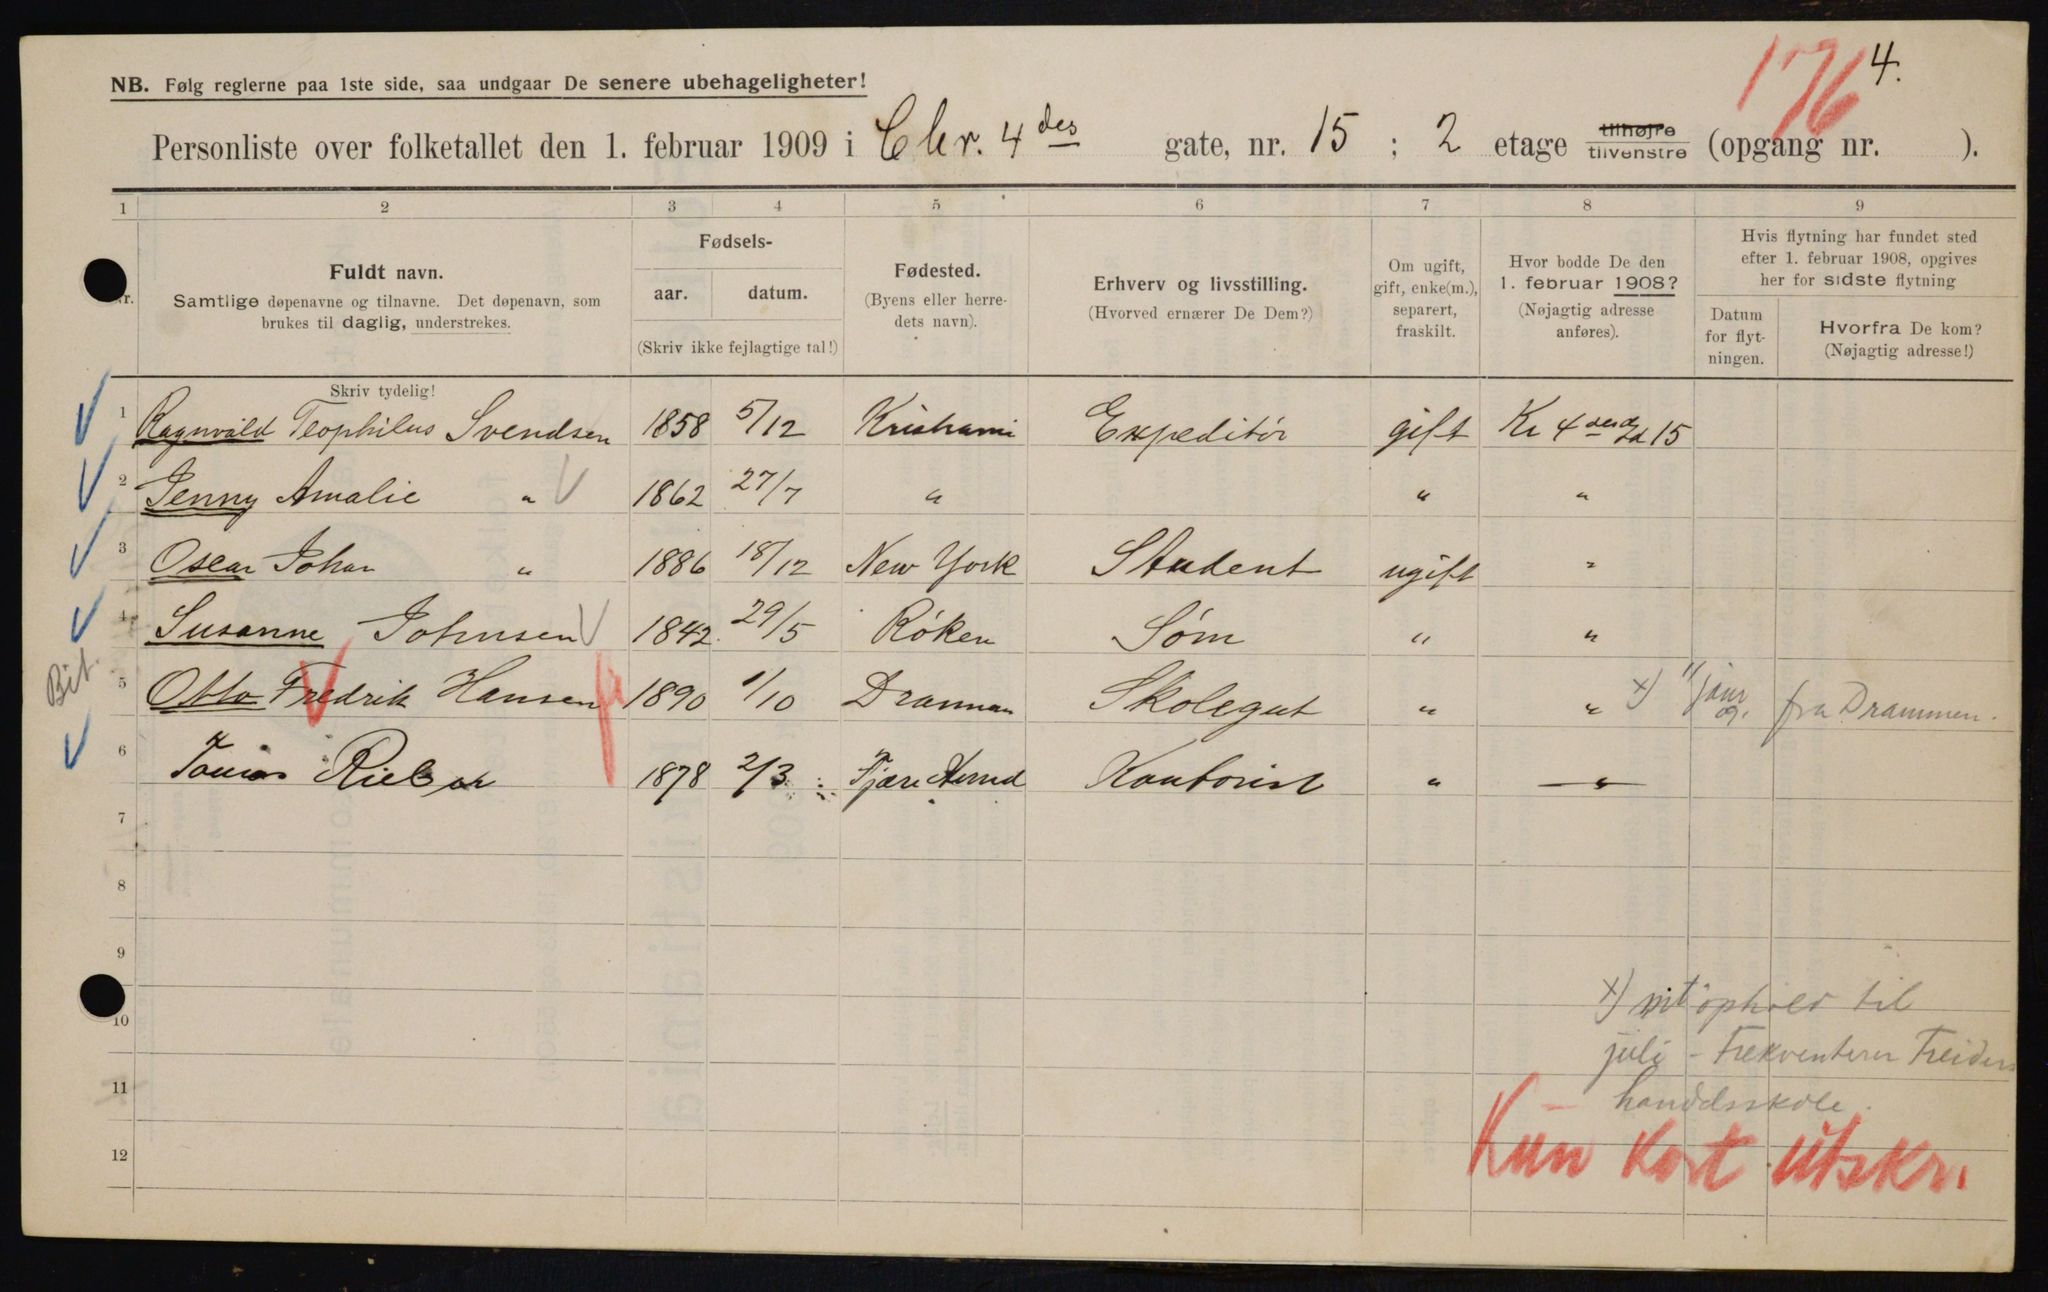 176 4.
NB. Følg reglerne paa 1ste side, saa undgaar De senere ubehageligheter!
Personliste over folketallet den 1. februar 1909 i Chr. 4 des gate, nr. 15 ; 2 etage tilhøjre tilvenstre (opgang nr. ).
1 2 3 4 5 6 7 8 9
Nr.
Fuldt navn.
Samtlige døpenavne og tilnavne. Det døpenavn, som
brukes til daglig, understrekes.
Skriv tydelig!
Fødsels-
aar. datum.
(Skriv ikke fejlagtige tal!)
Fødested.
(Byens eller herre-
dets navn).
Erhverv og livsstilling.
(Hvorved ernærer De Dem?)
Om ugift,
gift, enke(m.),
separert,
fraskilt.
Hvor bodde De den
1. februar 1908?
(Nøjagtig adresse
anføres).
Hvis flytning har fundet sted
efter 1. februar 1908, opgives
her for sidste flytning
Datum
for flyt-
ningen.
Hvorfra De kom?
(Nøjagtig adresse!)
1 Ragnvald Teophilus Svendsen 1858 5/12 Expeditør gift Kr 4 15
2 Jenny Amalie " 1862 27/7 " " "
3 Oscar Johan " 1886 18/12 New York Student ugift "
4 Susanne Johnsen 1842 29/5 Røken Søm " "
Bit.
5 Otto Fredrik Hansen 1890 1/10 Drammen Skolegut " " x) 1/1 jan. 09. fra Drammen.
6 1878 2/3 Fjære Kontorist " "
7
8
9
10
11
12
x) ophold til
juli - Frekventerer
handelsskole.
Kun kort utskr.